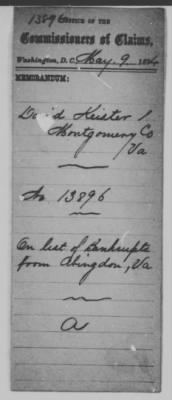 13896 OFFICE OF THE
Commissioners of Claims,
Washington, D. C. May. 9. 1874
MEMORANDUM:
David Keister S.
Montgomery Co
Va
No 13896
On list of Bankrupts
from Abingdon, Va
a